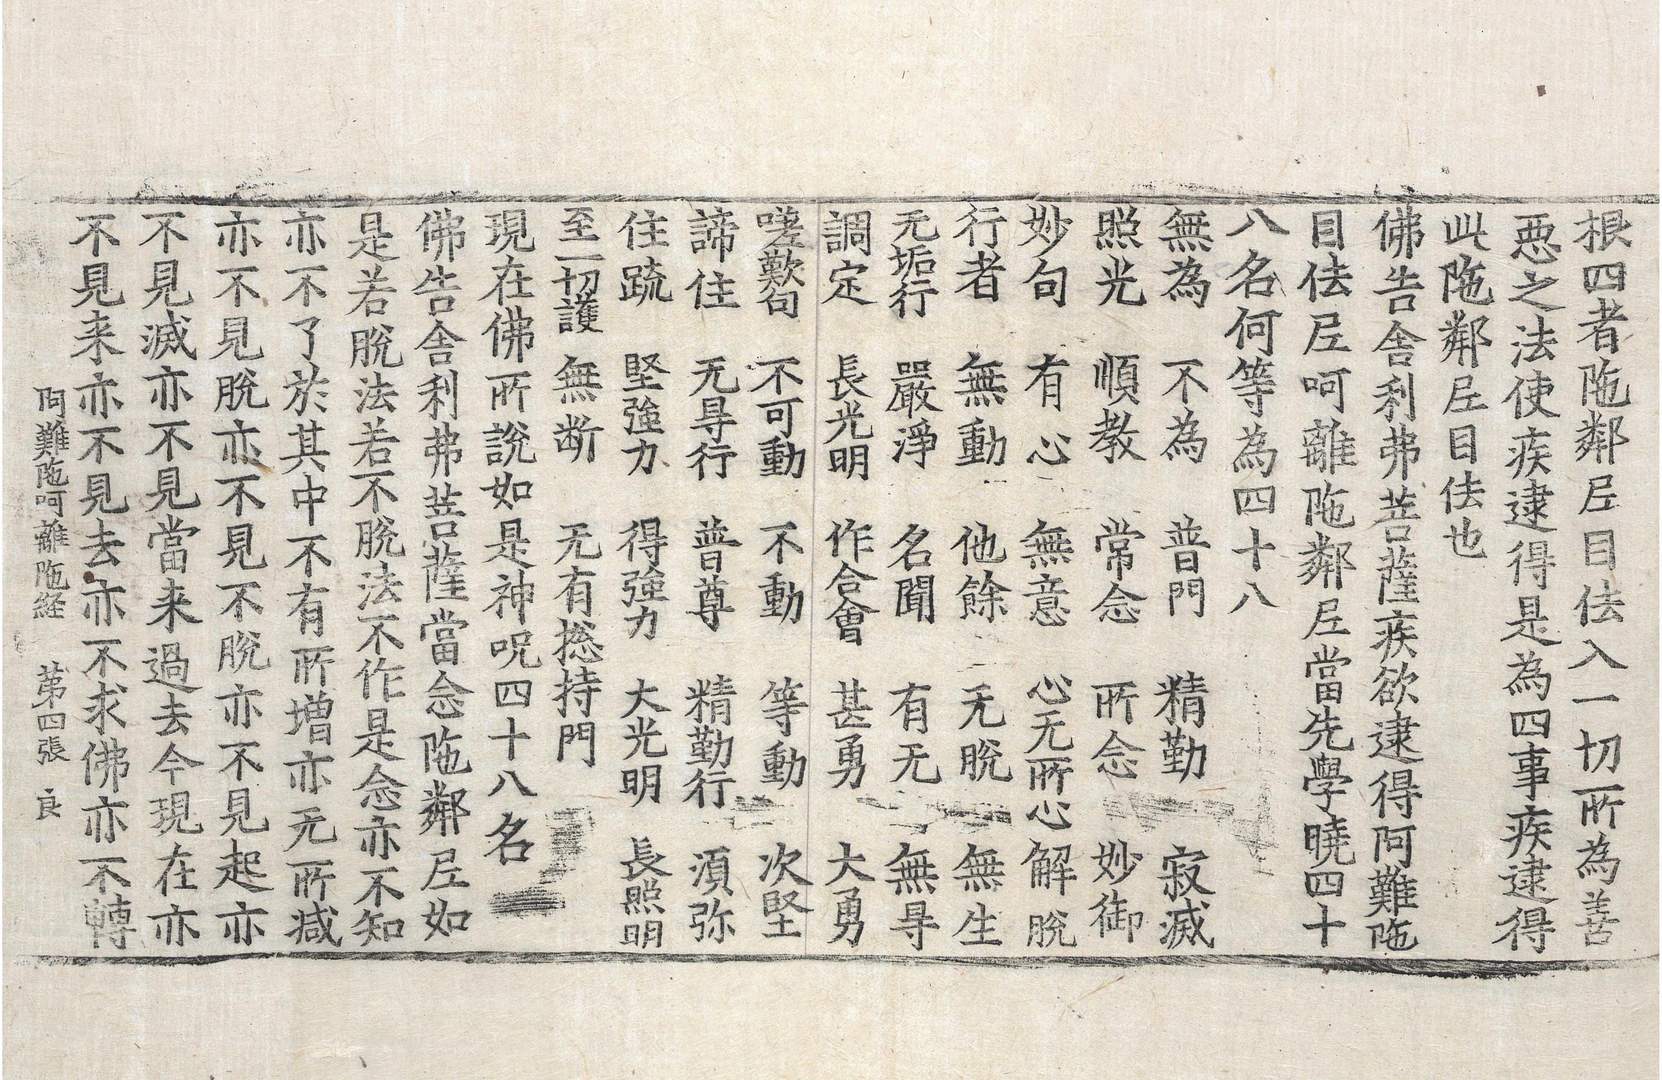 根四者陁鄰𡰱目佉入一切所為善
惡之法使疾逮得是為四事疾逮得
此陁鄰𡰱目佉也
佛告舍利弗菩薩疾欲逮得阿難陁
目佉𡰱呵離陁鄰𡰱當先學曉四十
八名何等為四十八
無為 不為 普門 精勤 寂滅
照光 順教 常念 所念 妙御
妙句 有心 無意 心无所心 解脫
行者 無動 他餘 无脫 無生
无垢行 嚴淨 名聞 有无 無㝵
調定 長光明 作合會 甚勇 大勇
嗟歎句 不可動 不動 等動 次堅
諦住 无㝵行 普尊 精勤行 湏弥
住䟽 堅強力 得強力 大光明 長照明
至一切護 無断 无有揔持門
現在佛所說如是神呪四十八名
佛告舍利弗菩薩當念陁鄰𡰱如
是若脫法若不脫法不作是念亦不知
亦不了於其中不有所增亦无所减
亦不見脫亦不見不脫亦不見起亦
不見滅亦不見當来過去今現在亦
不見来亦不見去亦不求佛亦不轉
阿難陁呵離陁経 苐四張 良